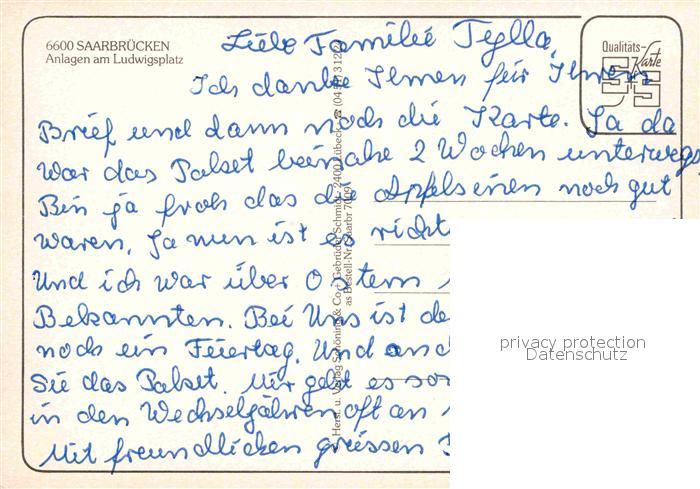 6600 SAARBRÜCKEN
Anlagen am Ludwigsplatz
Qualitäts-
Karte
Liebe Familie Tylla,
Ich danke Ihnen für Ihren
Brief und dann noch die Karte. Ja da
war das Paket beinahe 2 Wochen unterwegs
Bin ja froh das die Apfelseinen noch gut
waren. Ja nun ist es richt
Und ich war über Ostern
Bekannten. Bei Uns ist de
noch ein Feiertag. Und
Sie das Paket. Mir geht es so
in den Wechseljahren oft an
Mit freundlichen grüssen
Herst. u. Verlag Schöning & Co + Gebrüder Schmidt, 2400 Lübeck,
Bestell-Nr. Saarbr
privacy protection
Datenschutz